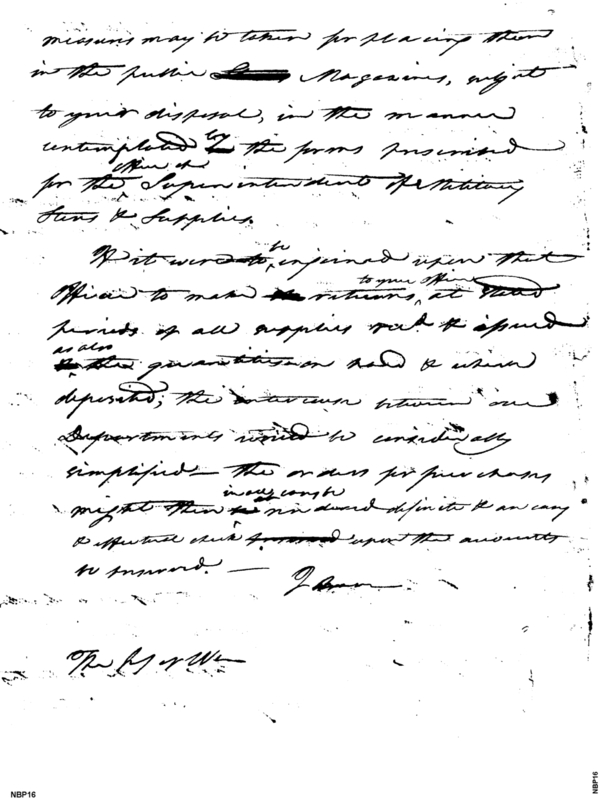 measures may be taken for placing them
in the public Magazines, subject
to your disposal, in the manner
contemplated by the forms prescribed
office of
for the Superintendent of Military
Stores & Supplies.
If it were to be enjoined upon that
to your office
Officer to make returns, at stated
periods of all supplies recd & issued
as also
the quantities on hand & where
deposited; the intercourse between our
Departments would be considerably
simplified — the orders for purchases
in all cases be
might then rendered definite & an easy
& effectual check upon the accounts
be insured. —
I am
The Secy of War
NBP16
NBP16